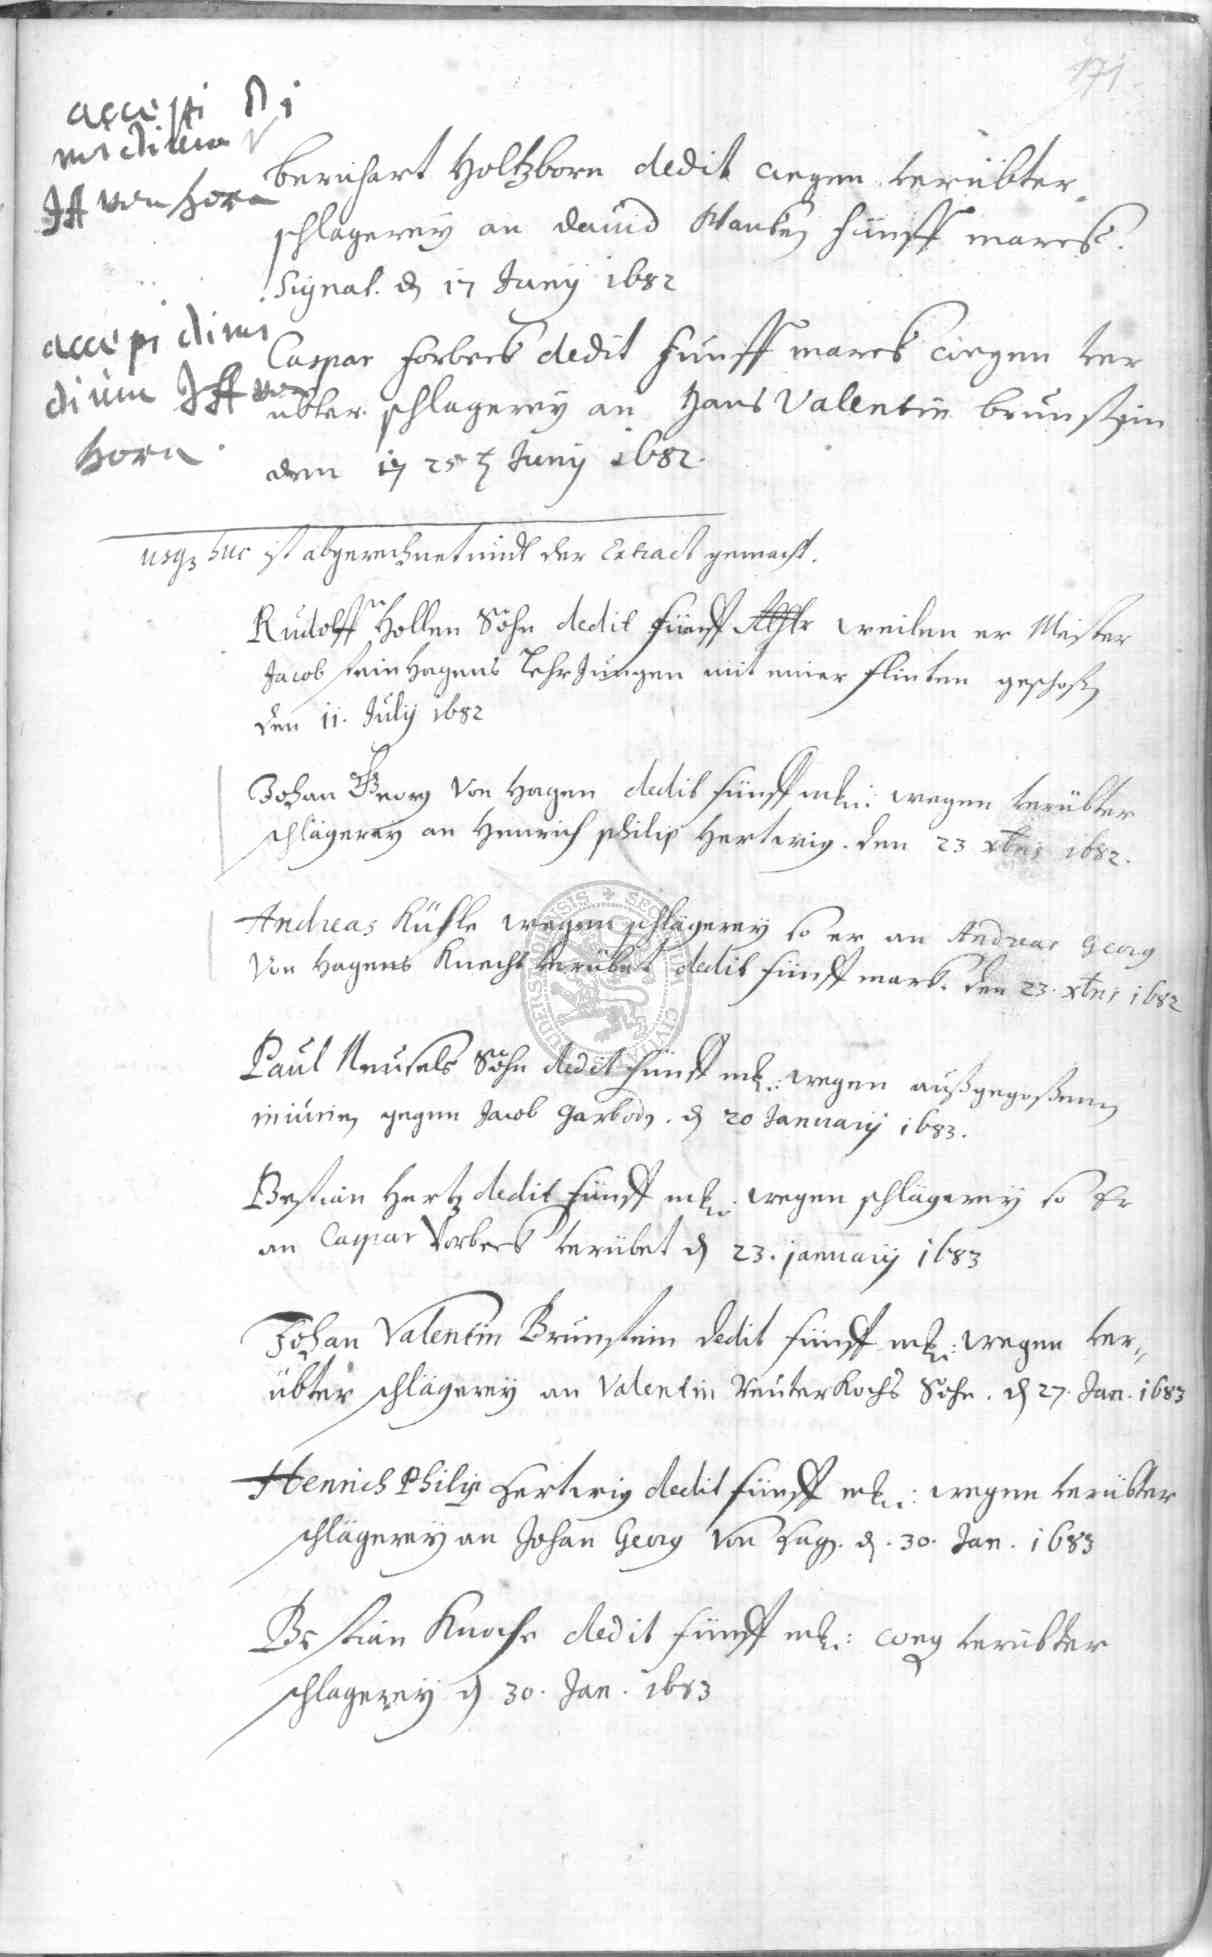 171
accepi di
midium
JH von Horn
Bernhart Holtzborn dedit wegen verübter
schlagerey an david fünff marck.
Signat. d 17 Junij 1682
accepi dimi
dium JH von
Horn
Caspar Forbeck dedit fünff marck wegen ver
übter schlagerey an Hans Valentin brunstein
den 25 t Junij 1682.
usq3 huc ist abgerechnet undt der Extract gemacht.
Rudolff Hollen Sohn dedit fünff weilen er Meister
Jacob steinhagens Lehr Jungen mit einer flinten geschoßen
den 11. Julij 1682
Johan Georg Von Hagen dedit fünff mk: wegen verübter
schlägerey an Henrich philip Hertwig. den 23 xbris 1682.
Andreas Küsle wegen schlägerey so er an Andreas Georg
Von Hagens Knecht verübet dedit fünff mark. den 23. xbris 1682
Paul Neusels Sohn dedit fünff mk: wegen außgegoßenen
injurien gegen Jacob Garboden. d 20 Januarij 1683.
Bestian Hertz dedit fünff mk: wegen schlägerey so Er
an Caspar Vorbeck verübet d 23. januarij 1683
Johan Valentin Brunstein dedit fünff mk: wegen ver„
übter schlägerey an Valentin Reuterkochs Sohn. d 27. Jan. 1683
Henrich Philip Hertwig dedit fünff mk: wegen verübter
schlägerey an Johan Georg Von Hagn. d. 30. Jan. 1683
Bestian Knoche dedit fünff mk: weg verübter
schlagerey d 30. Jan. 1683